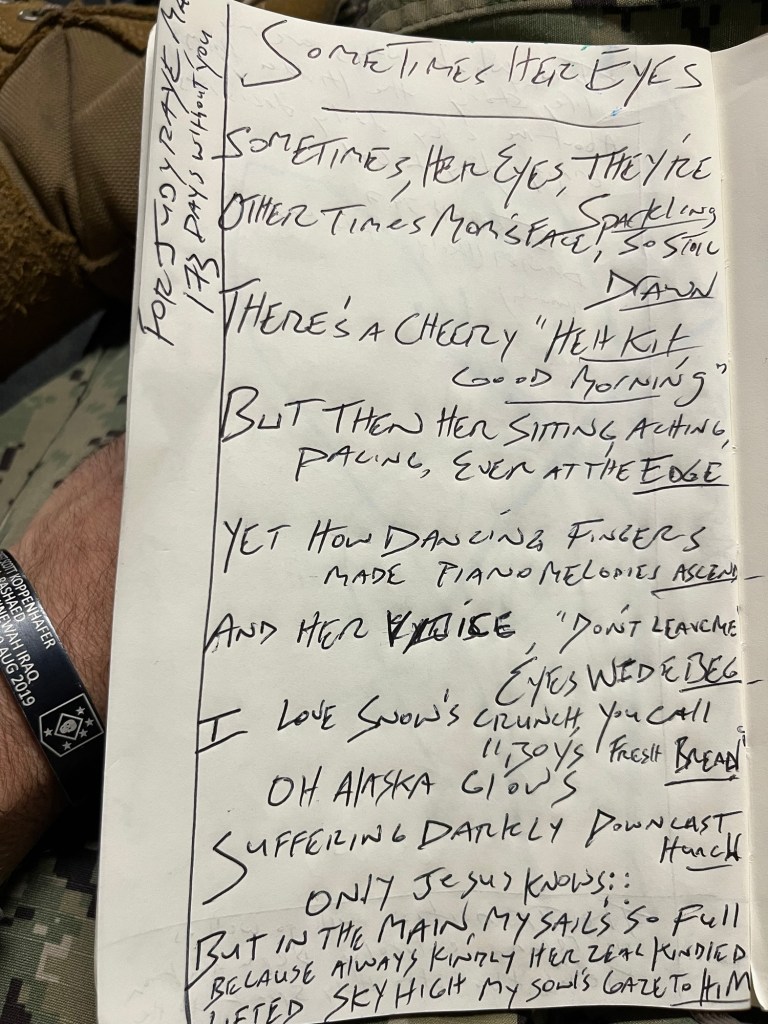 SOMETIMES HER EYES
FOR JUDY RAYE
173 DAYS without you
SOMETIMES, HER EYES, THEY'RE
Sparkling
OTHER TIMES MOM'S FACE, SO STOIC
DRAWN
THERE'S A CHEERY "HEH KIT,
GOOD MORNING"
BUT THEN HER SITTING, ACHING,
PACING, EVER AT THE EDGE
YET HOW DANCING FINGERS
MADE PIANO MELODIES ASCEND
AND HER VOICE, "DON'T LEAVE ME"
EYES WIDE BEG
I LOVE SNOW'S CRUNCH YOU CALL
"BOYS FRESH BREAD"
OH ALASKA GLOWS
SUFFERING DARKLY DOWNCAST
HUNCH
ONLY JESUS KNOWS::
BUT IN THE MAIN, MY SAIL'S SO FULL
BECAUSE ALWAYS KINDLY HER ZEAL KINDLED
LIFTED SKY HIGH MY SOUL'S GAZE TO HIM
KOPPENHAFER
RASHAED
NINEWAH IRAQ
AUG 2019